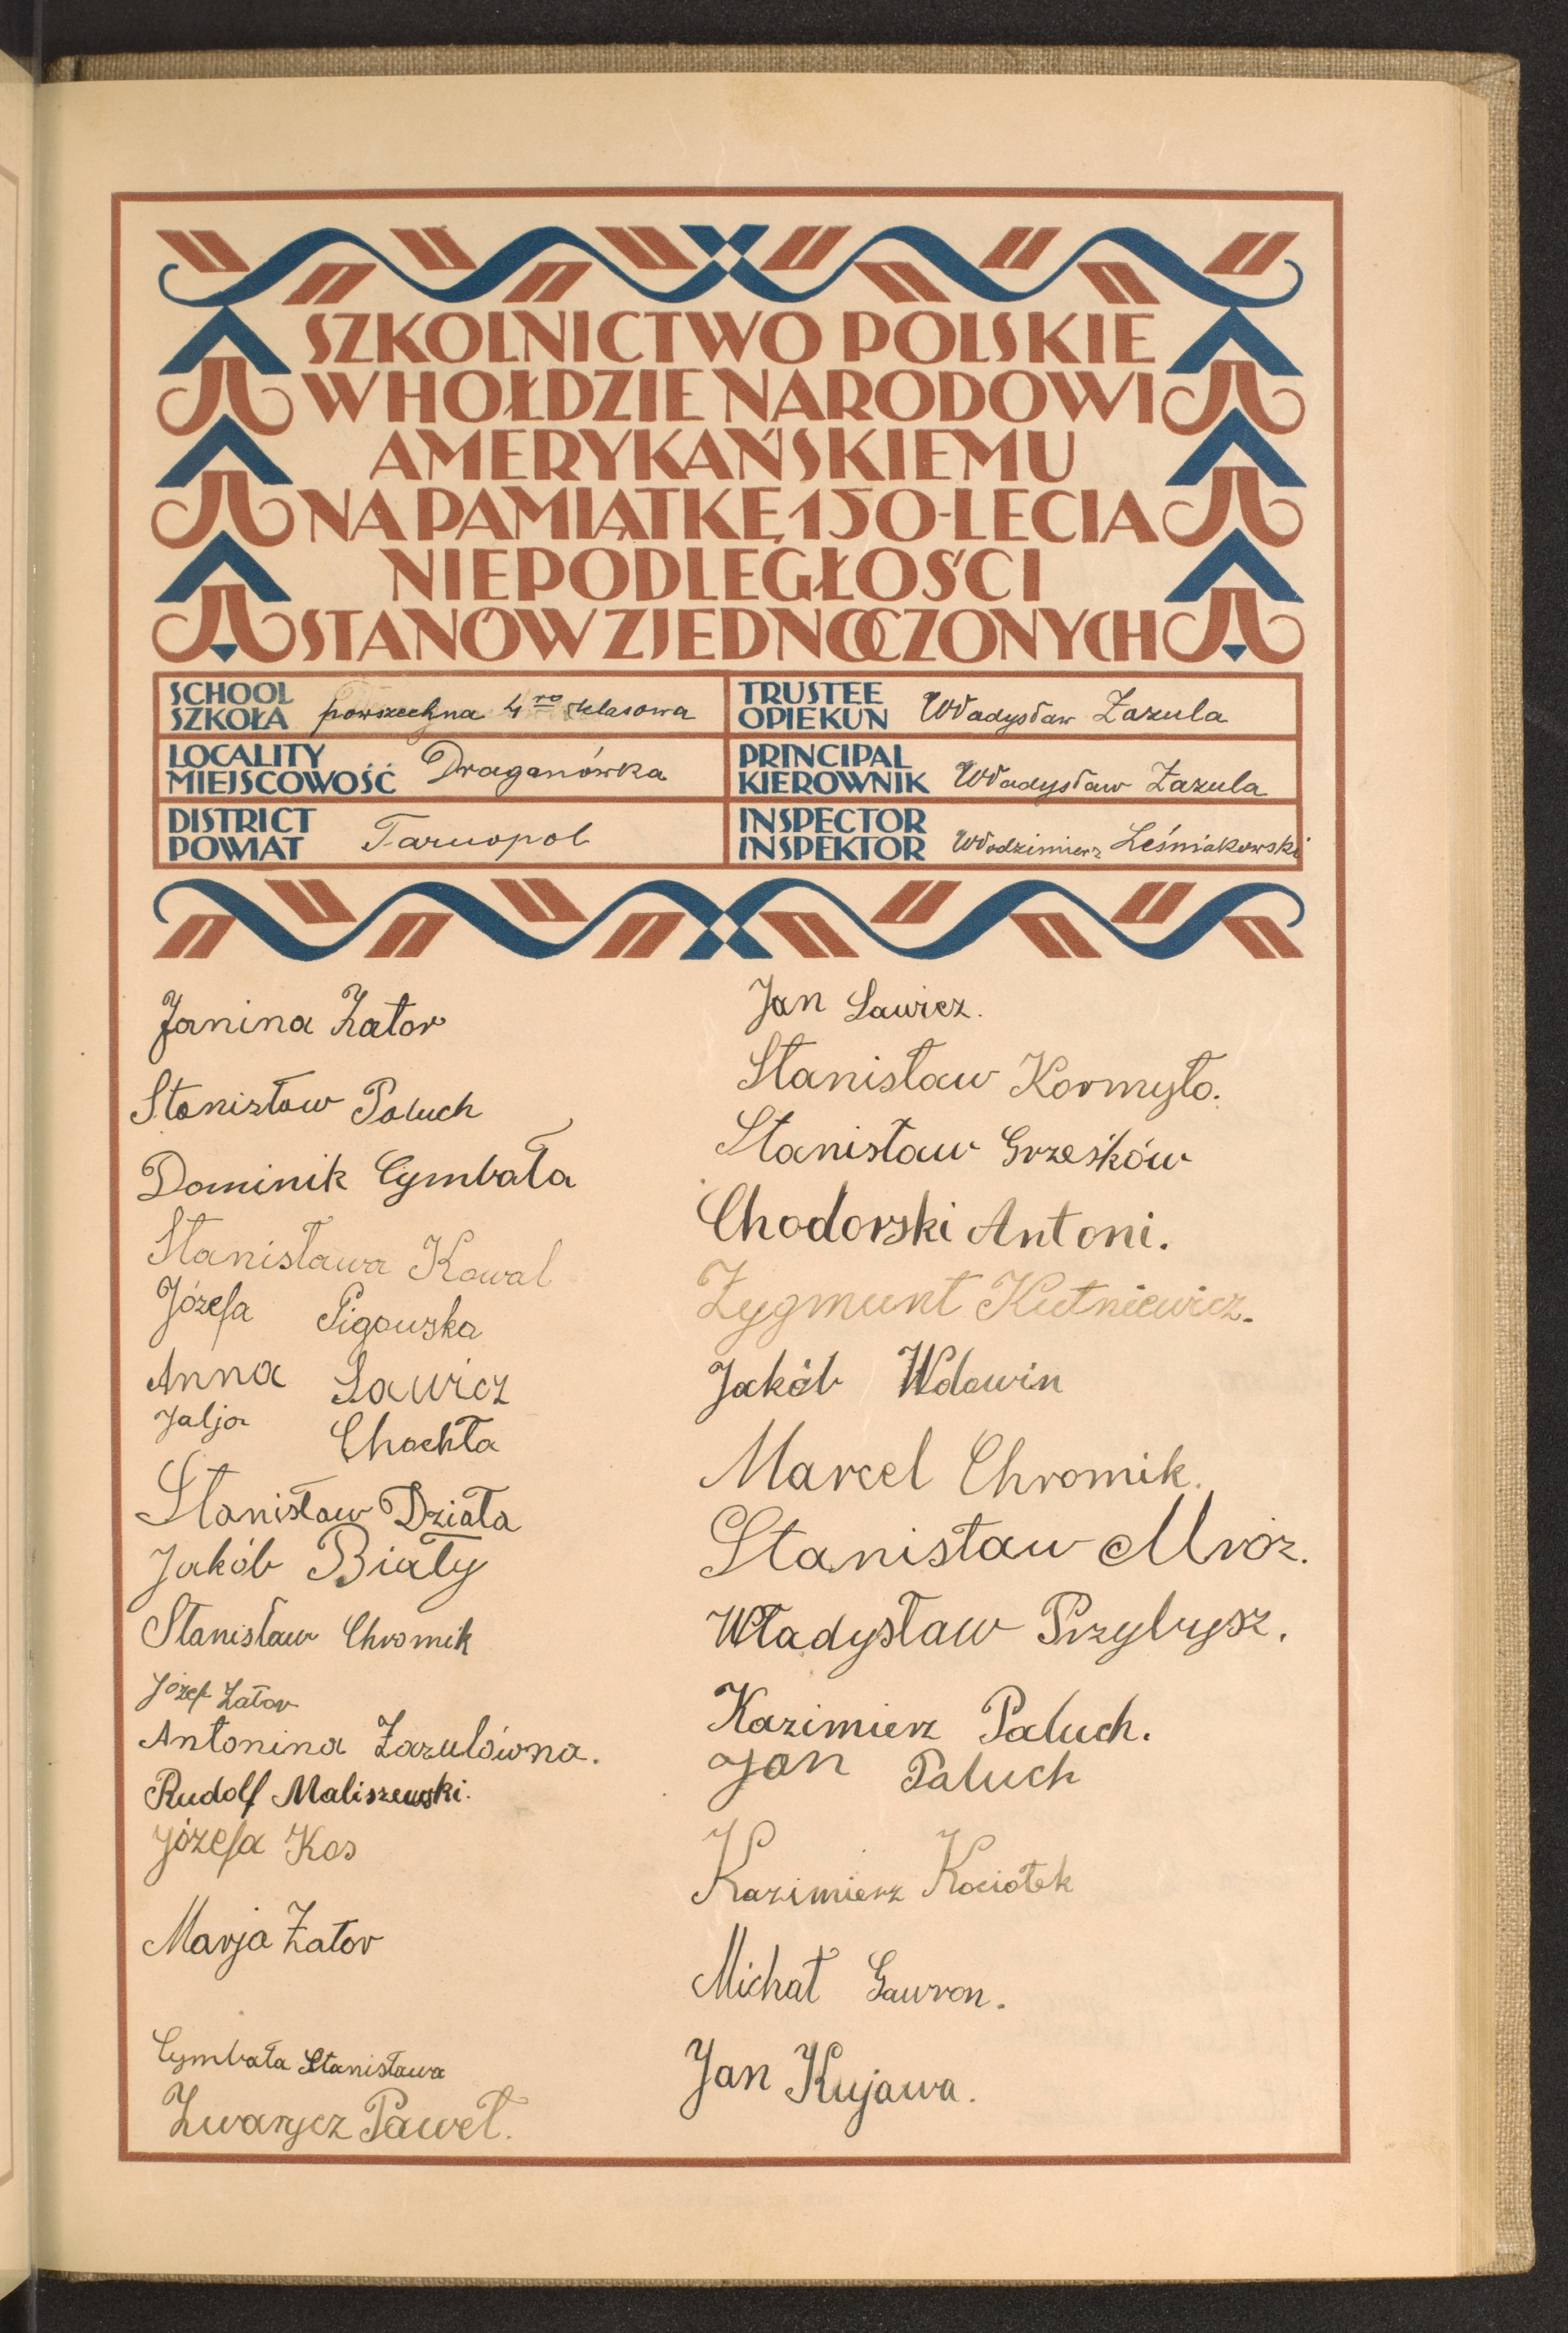 SZKOLNICTWO POLSKIE
W HOŁDZIE NARODOWI
AMERYKAŃSKIEMU
NA PAMIĄTKĘ 150-LECIA
NIEPODLEGŁOŚCI
STANÓW ZJEDNOCZONYCH
SCHOOL
SZKOŁA powszechna 4ro klasowa
TRUSTEE
OPIEKUN Władysław Zazula
LOCALITY
MIEJSCOWOŚĆ Draganówka
PRINCIPAL
KIEROWNIK Władysław Zazula
DISTRICT
POWIAT Tarnopol
INSPECTOR
INSPEKTOR Włodzimierz Leśniakowski
Janina Zator
Stanisław Paluch
Dominik Cymbała
Stanisława Kowal
Józefa Pigowska
Anna Sawicz
Julja Chochła
Stanisław Działa
Jakób Biały
Stanisław Chromik
Józef Zator
Antonina Zazulówna.
Rudolf Maliszewski.
Józefa Kos
Marja Zator
Cymbała Stanisława
Zwarycz Paweł.
Jan Sawicz.
Stanisław Kormyło.
Stanisław Grześków
Chodorski Antoni.
Zygmunt Kutniewicz.
Jakób Wdowin
Marcel Chromik.
Stanisław Mróz.
Władysław Przybysz.
Kazimierz Paluch.
Jan Paluch
Kazimierz Kociołek
Michał Gawron.
Jan Kujawa.